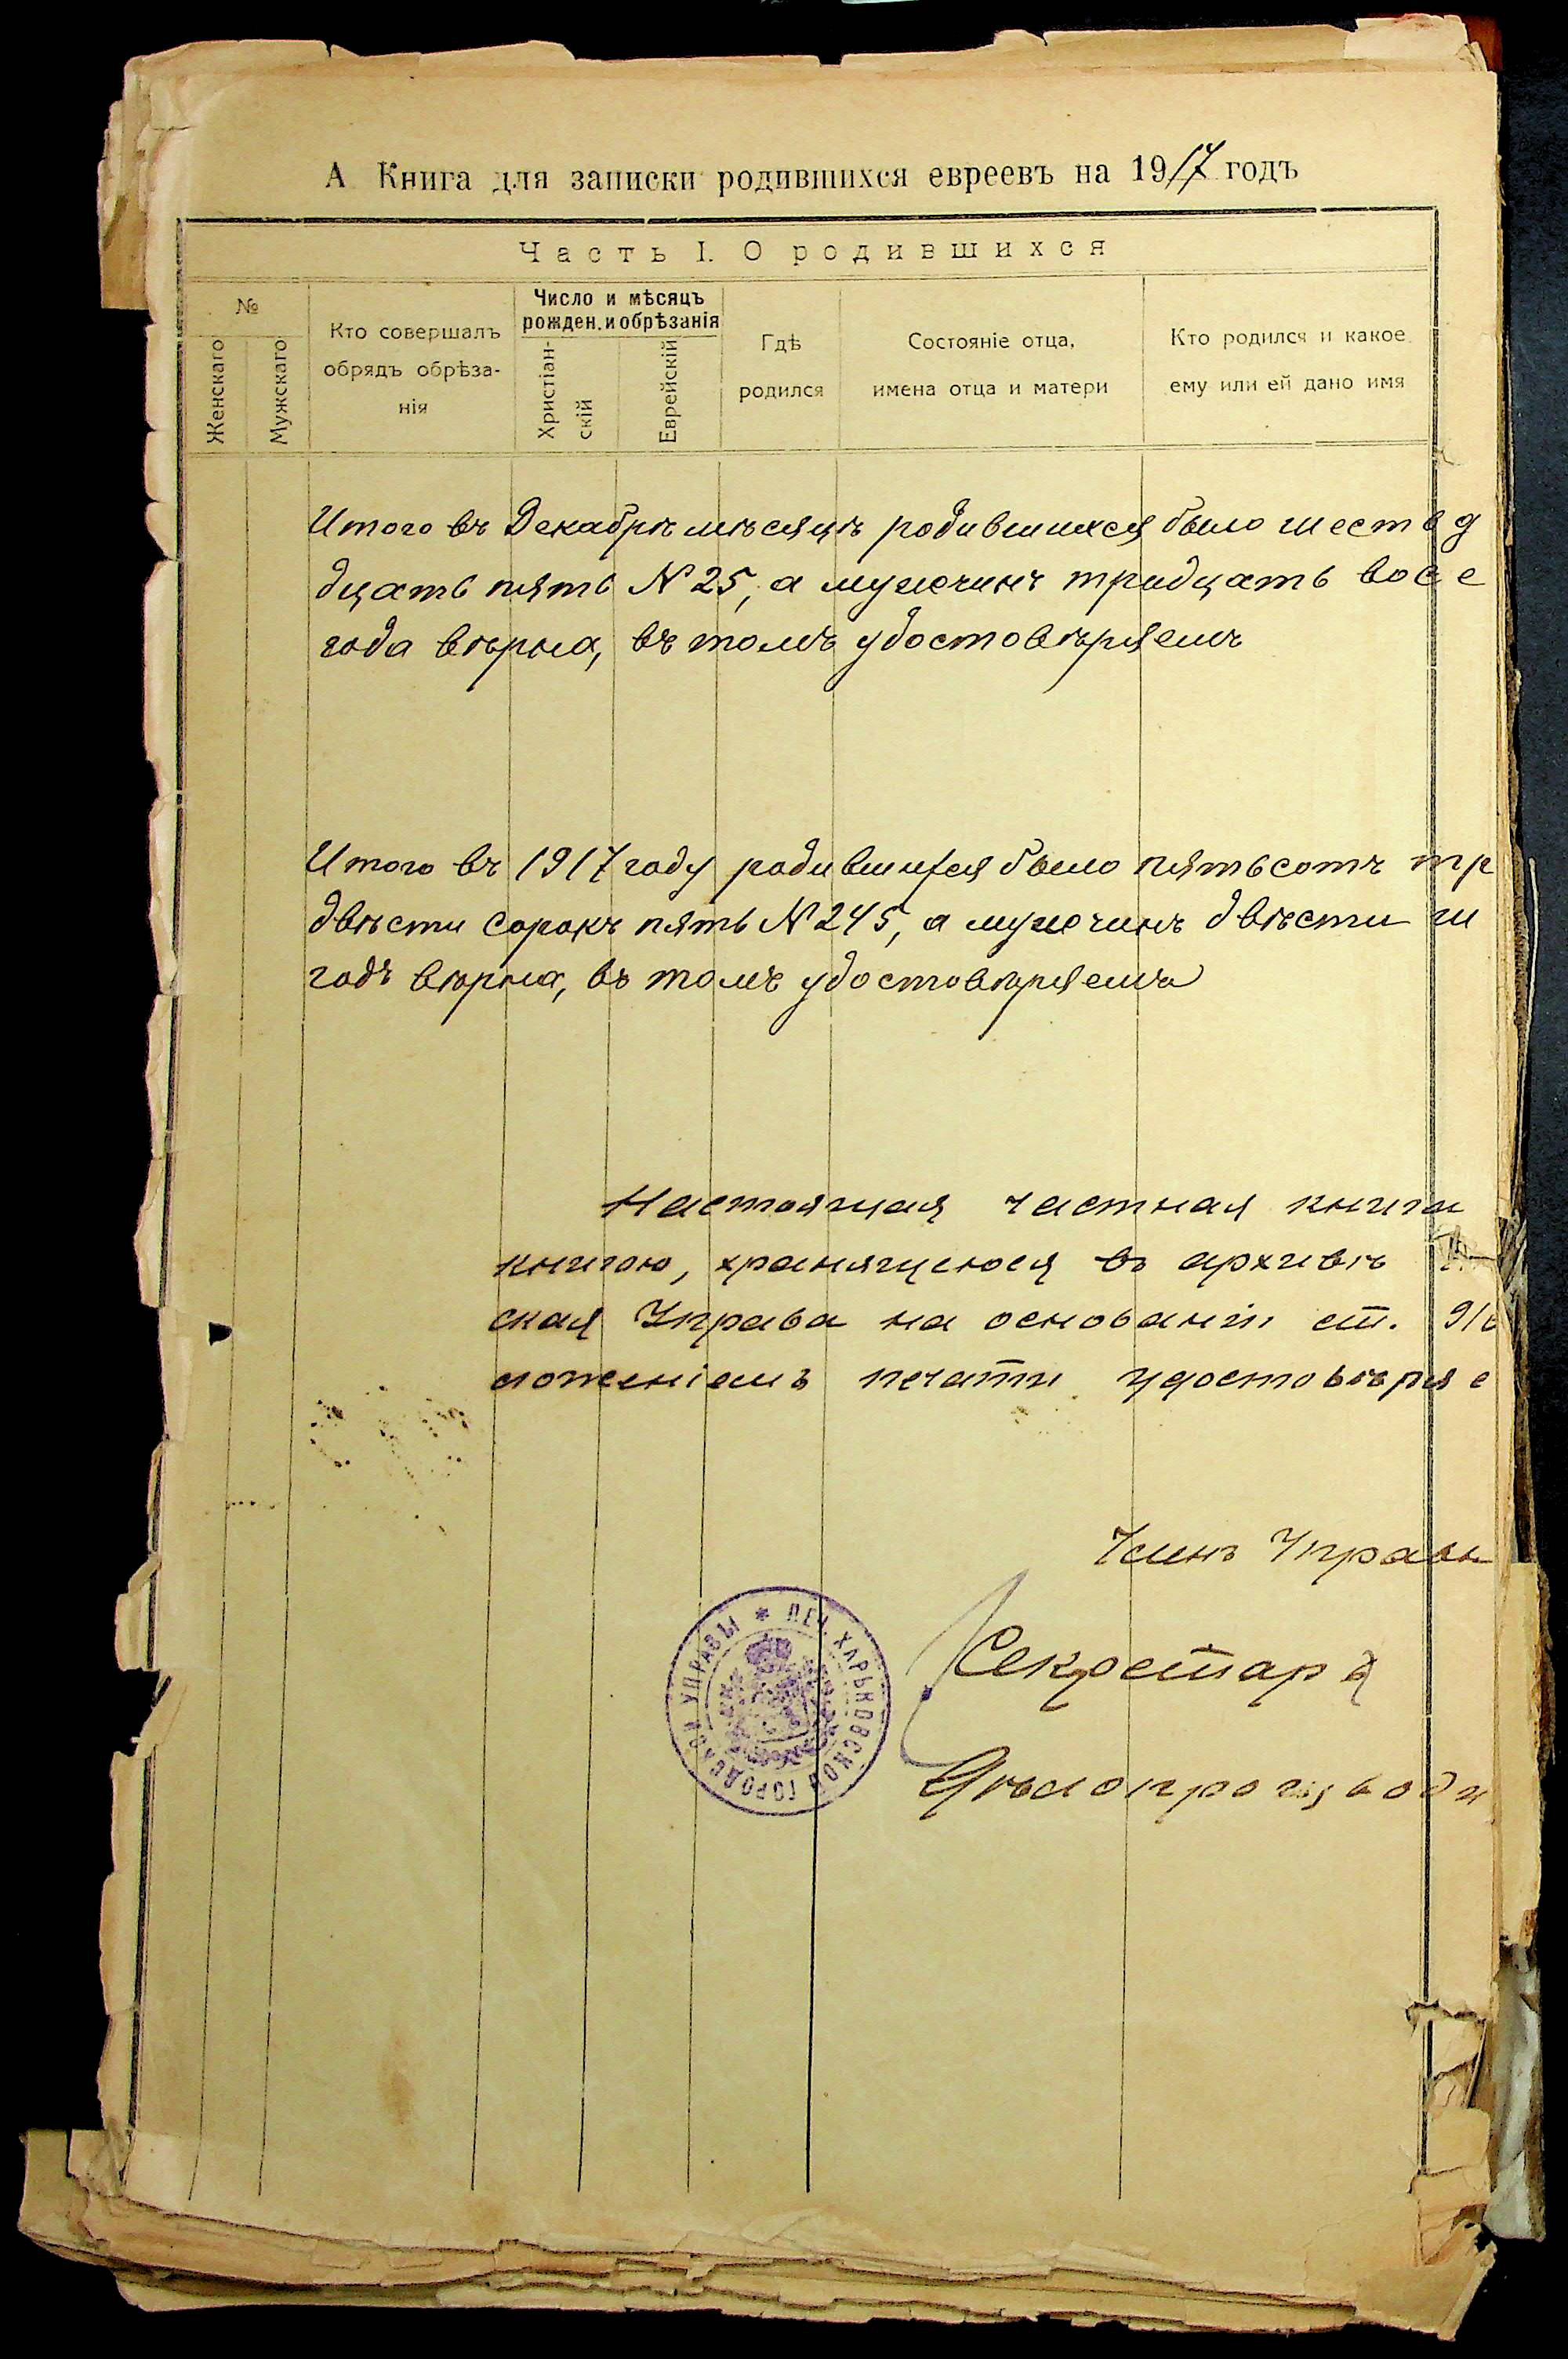 А Книга для записки родившихся евреевъ на 1917 годъ
Часть I. О родившихся
№
Женскаго
Мужскаго
Кто совершалъ
обрядъ обрѣза-
нія
Число и мѣсяцъ
рожден. и обрѣзанія
Христіан-
скій
Еврейскій
Гдѣ
родился
Состояніе отца,
имена отца и матери
Кто родился и какое
ему или ей дано имя
Итого въ Декабрѣ мѣсяцѣ родившихся было шестьд
дцать пять № 25, а мужчинъ тридцать восе
года вѣрна, въ томъ удостовѣряемъ
Итого въ 1917 году родившихся было пятьсотъ тр
двѣсти сорокъ пять № 245, а мужчинъ двѣсти ш
годъ вѣрна, въ томъ удостовѣряемъ
Настоящая частная книга
книгою, хранящеюся въ архивѣ
ская Управа на основаніи ст. 916
ложеніемъ печати удостовѣряе
Членъ Управы
Секретарь
Дѣлопроизводи
ПЕЧ. ХАРЬКОВСКОЙ ГОРОДСКОЙ УПРАВЫ *